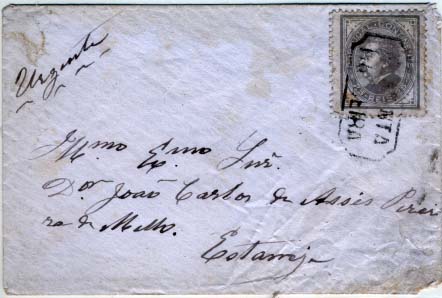 Urgente
Illmo Exmo Snr.
Dor João Carlos de Assis Perei
ra de Mello.
Estarreja